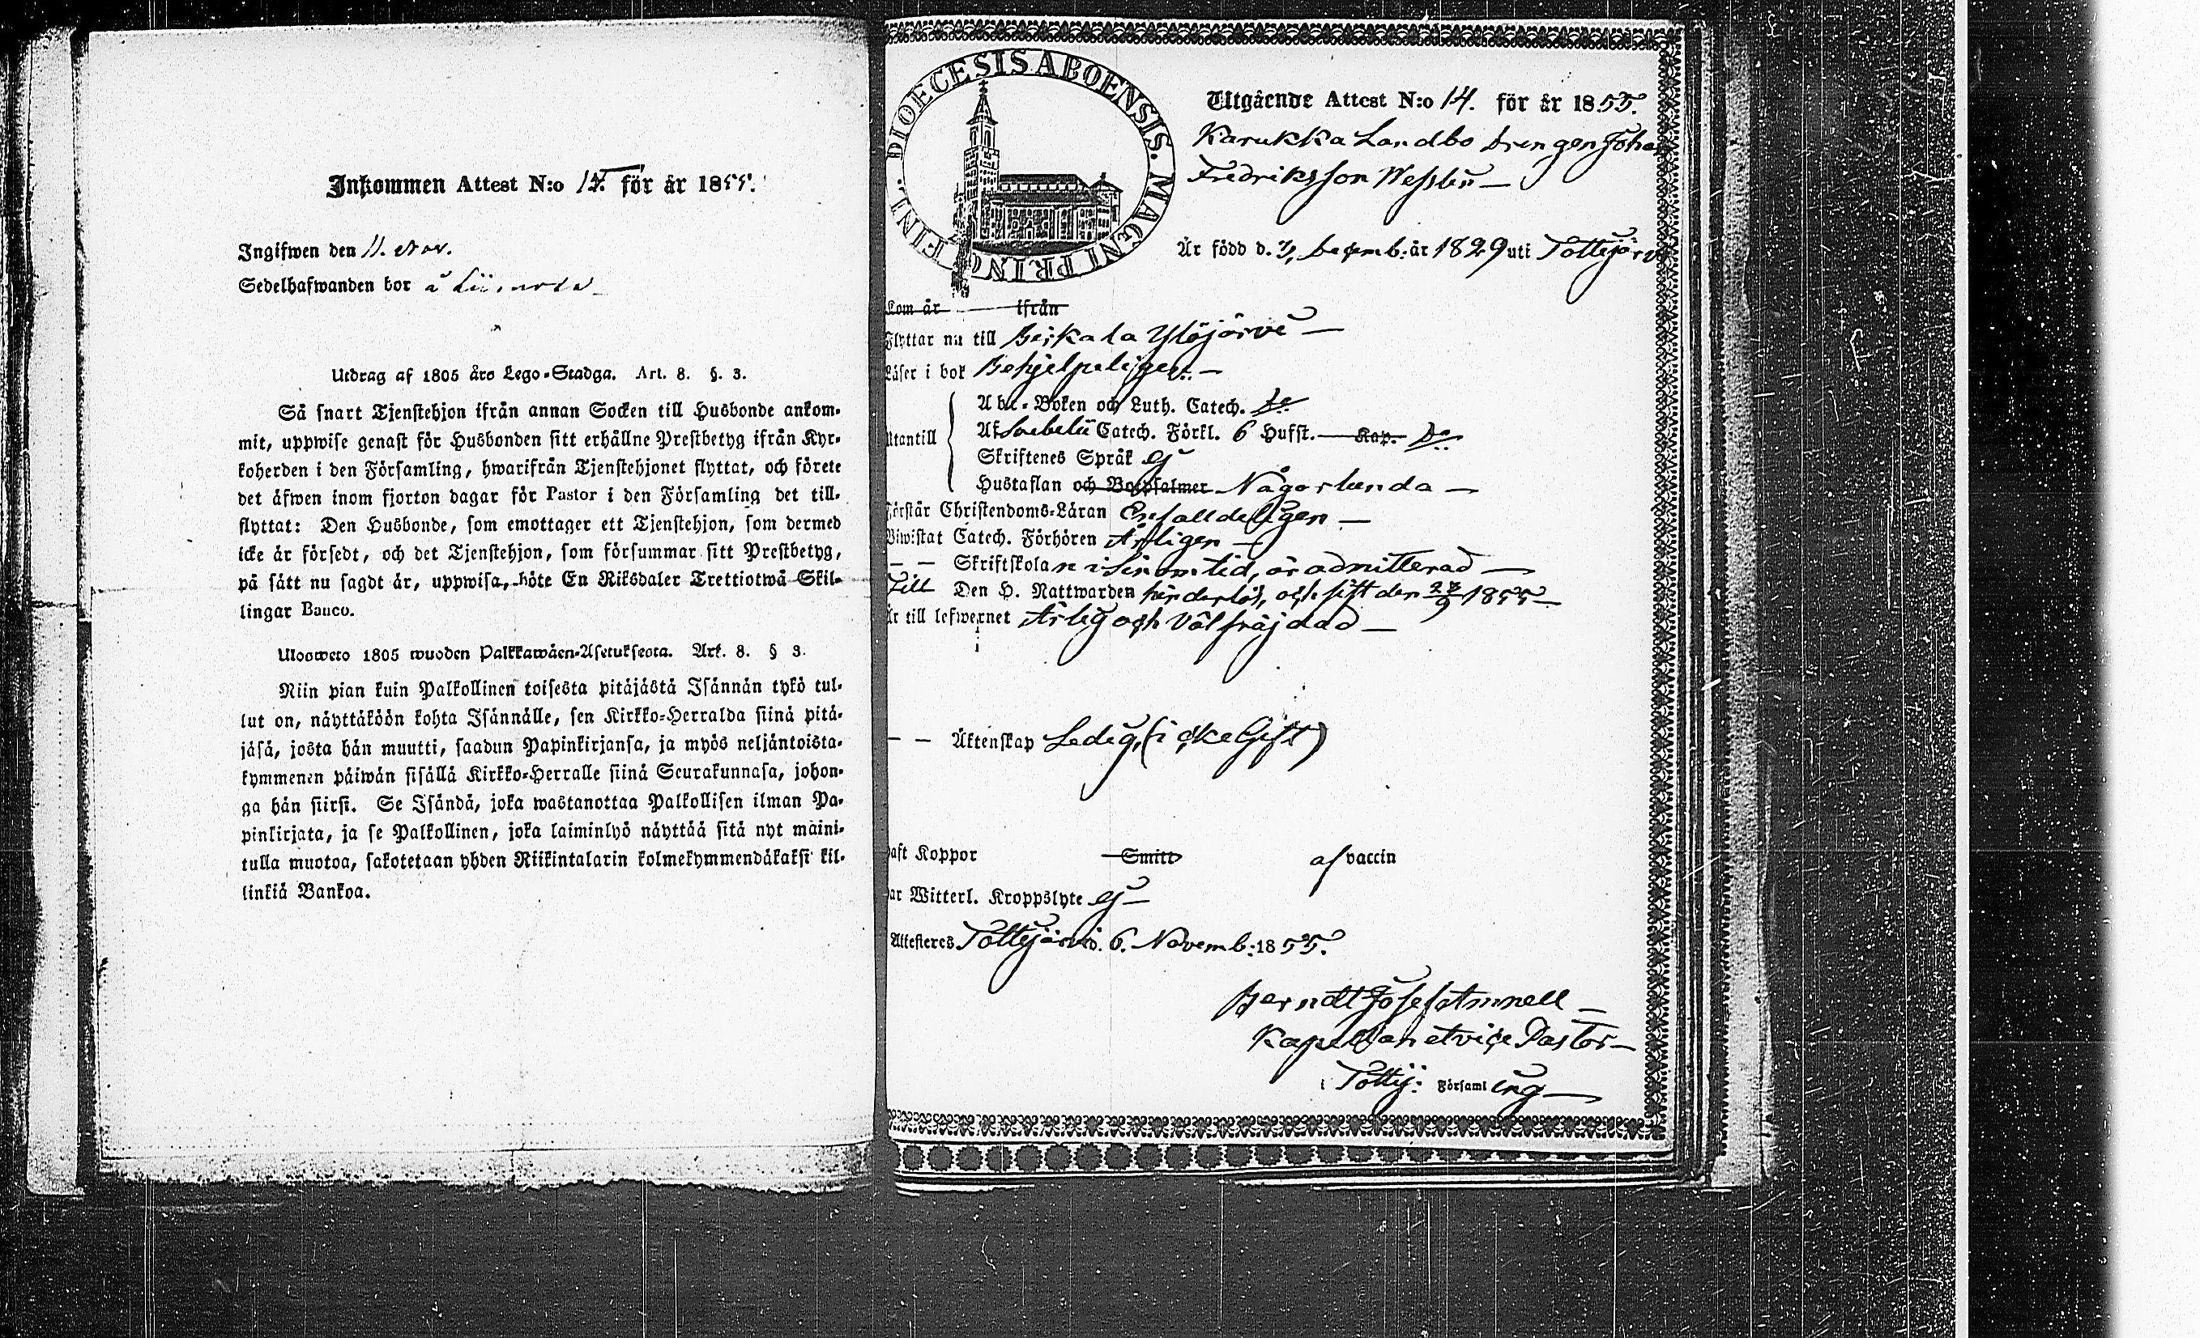 Inkommen Attest N:o 14. för år 1855.
Ingifwen den 11. Nov.
Sedelhafwanden bor å
Utdrag af 1805 års Lego-Stadga. Art. 8. §. 3.
Så snart Tjenstehjon ifrån annan Socken till Husbonde ankom-
mit, uppwise genast för Husbonden sitt erhållne Prestbetyg ifrån Kyr-
koherden i den Församling, hwarifrån Tjenstehjonet flyttat, och förete
det äfwen inom fjorton dagar för Pastor i den Församling det till-
flyttat: Den Husbonde, som emottager ett Tjenstehjon, som dermed
icke är försedt, och det Tjenstehjon, som försummar sitt Prestbetyg,
på sätt nu sagdt är, uppwisa, böte En Riksdaler Trettiotwå Skil-
lingar Banco.
Ulosweto 1805 wuoden Palkkawäen-Asetuksesta. Art. 8. § 3.
Niin pian kuin Palkollinen toisesta pitäjästä Isännän tykö tul-
lut on, näyttäköön kohta Isännälle, sen Kirkko-Herralda siinä pitä-
jäsä, josta hän muutti, saadun Papinkirjansa, ja myös neljäntoista-
kymmenen päiwän sisällä Kirkko-Herralle siinä Seurakunnasa, johon-
ga hän siirsi. Se Isändä, joka wastanottaa Palkollisen ilman Pa-
pinkirjata, ja se Palkollinen, joka laiminlyö näyttää sitä nyt maini-
tulla muotoa, sakotetaan yhden Riikintalarin kolmekymmendäkaksi kil-
linkiä Bankoa.
DIOECESIS ABOENSIS. MAGNI PRINC. FINL.
Utgående Attest N:o 14. för år 1855.
Karukka Landbo Drengen Johan
Fredriksson
Är född d. 3, Decemb: år 1829 uti Tottijärvi
Kom år ifrån
Flyttar nu till Birkala Ylöjärvi
Läser i bok Behjelpeligen.
Abc-Boken och Luth. Catech. do
Utantill Af Svebelii Catech. Förkl. 6 Hufst. Kap. do
Skriftenes Språk ej
Hustaflan och Botpsalmer Någorlunda
Förstår Christendoms-Läran Enfalldeligen
Biwistat Catech. Förhören Årligen
Skriftskolan i sin om tid, är admitterad
Till Den H. Nattwarden hinderlös, och sist den 27/9 1855
Är till lefwernet Ärlig och Välfräjdad
Äktenskap Ledig, (icke Gift)
haft Koppor Smitt af vaccin
har Witterl. Kroppslyte ej
Attesteres Tottijärvi d. 6. Novemb: 1855.
Berndt Josef
Kapellan et vice Pastor
i Tottij: Församling